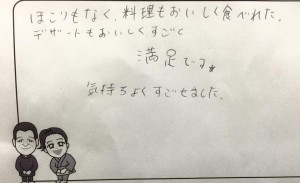 ほこりもなく、料理もおいしく食べれた。
デザートもおいしくすごく
満足です。
気持ちよくすごせました。